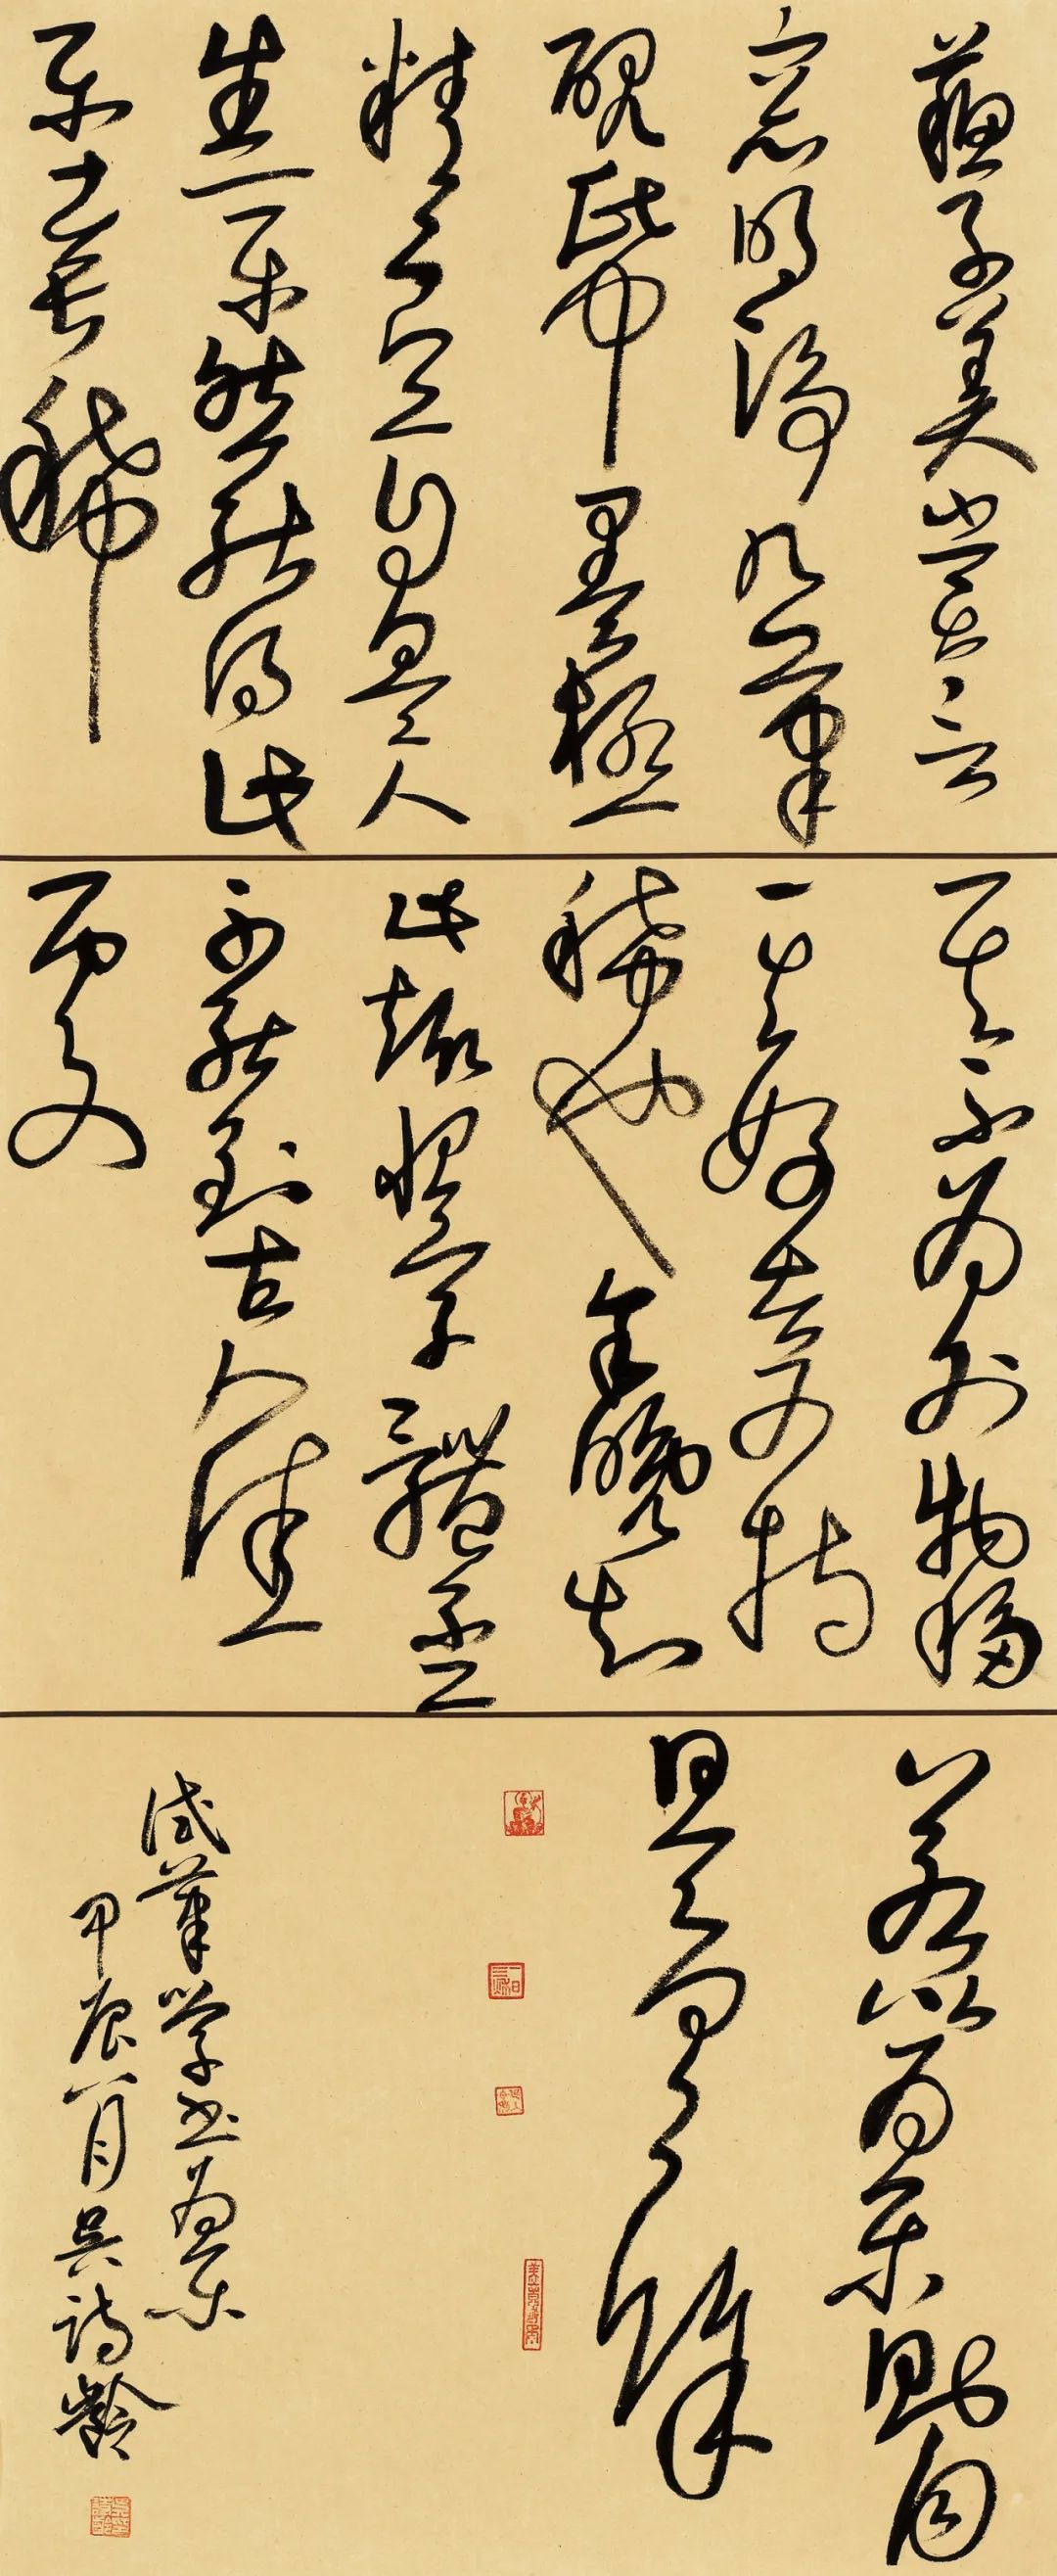 蘇子美嘗言
窓明淨几筆
硯帋墨皆極
精良亦自是人
生一樂然能得此
樂者甚稀
其不為外物移
其好者又特
稀也余晚知
此趣恨字體不工
不能到古人佳
處
若以為樂則自
是有餘
試筆學書為樂
甲辰八月吳詩齡